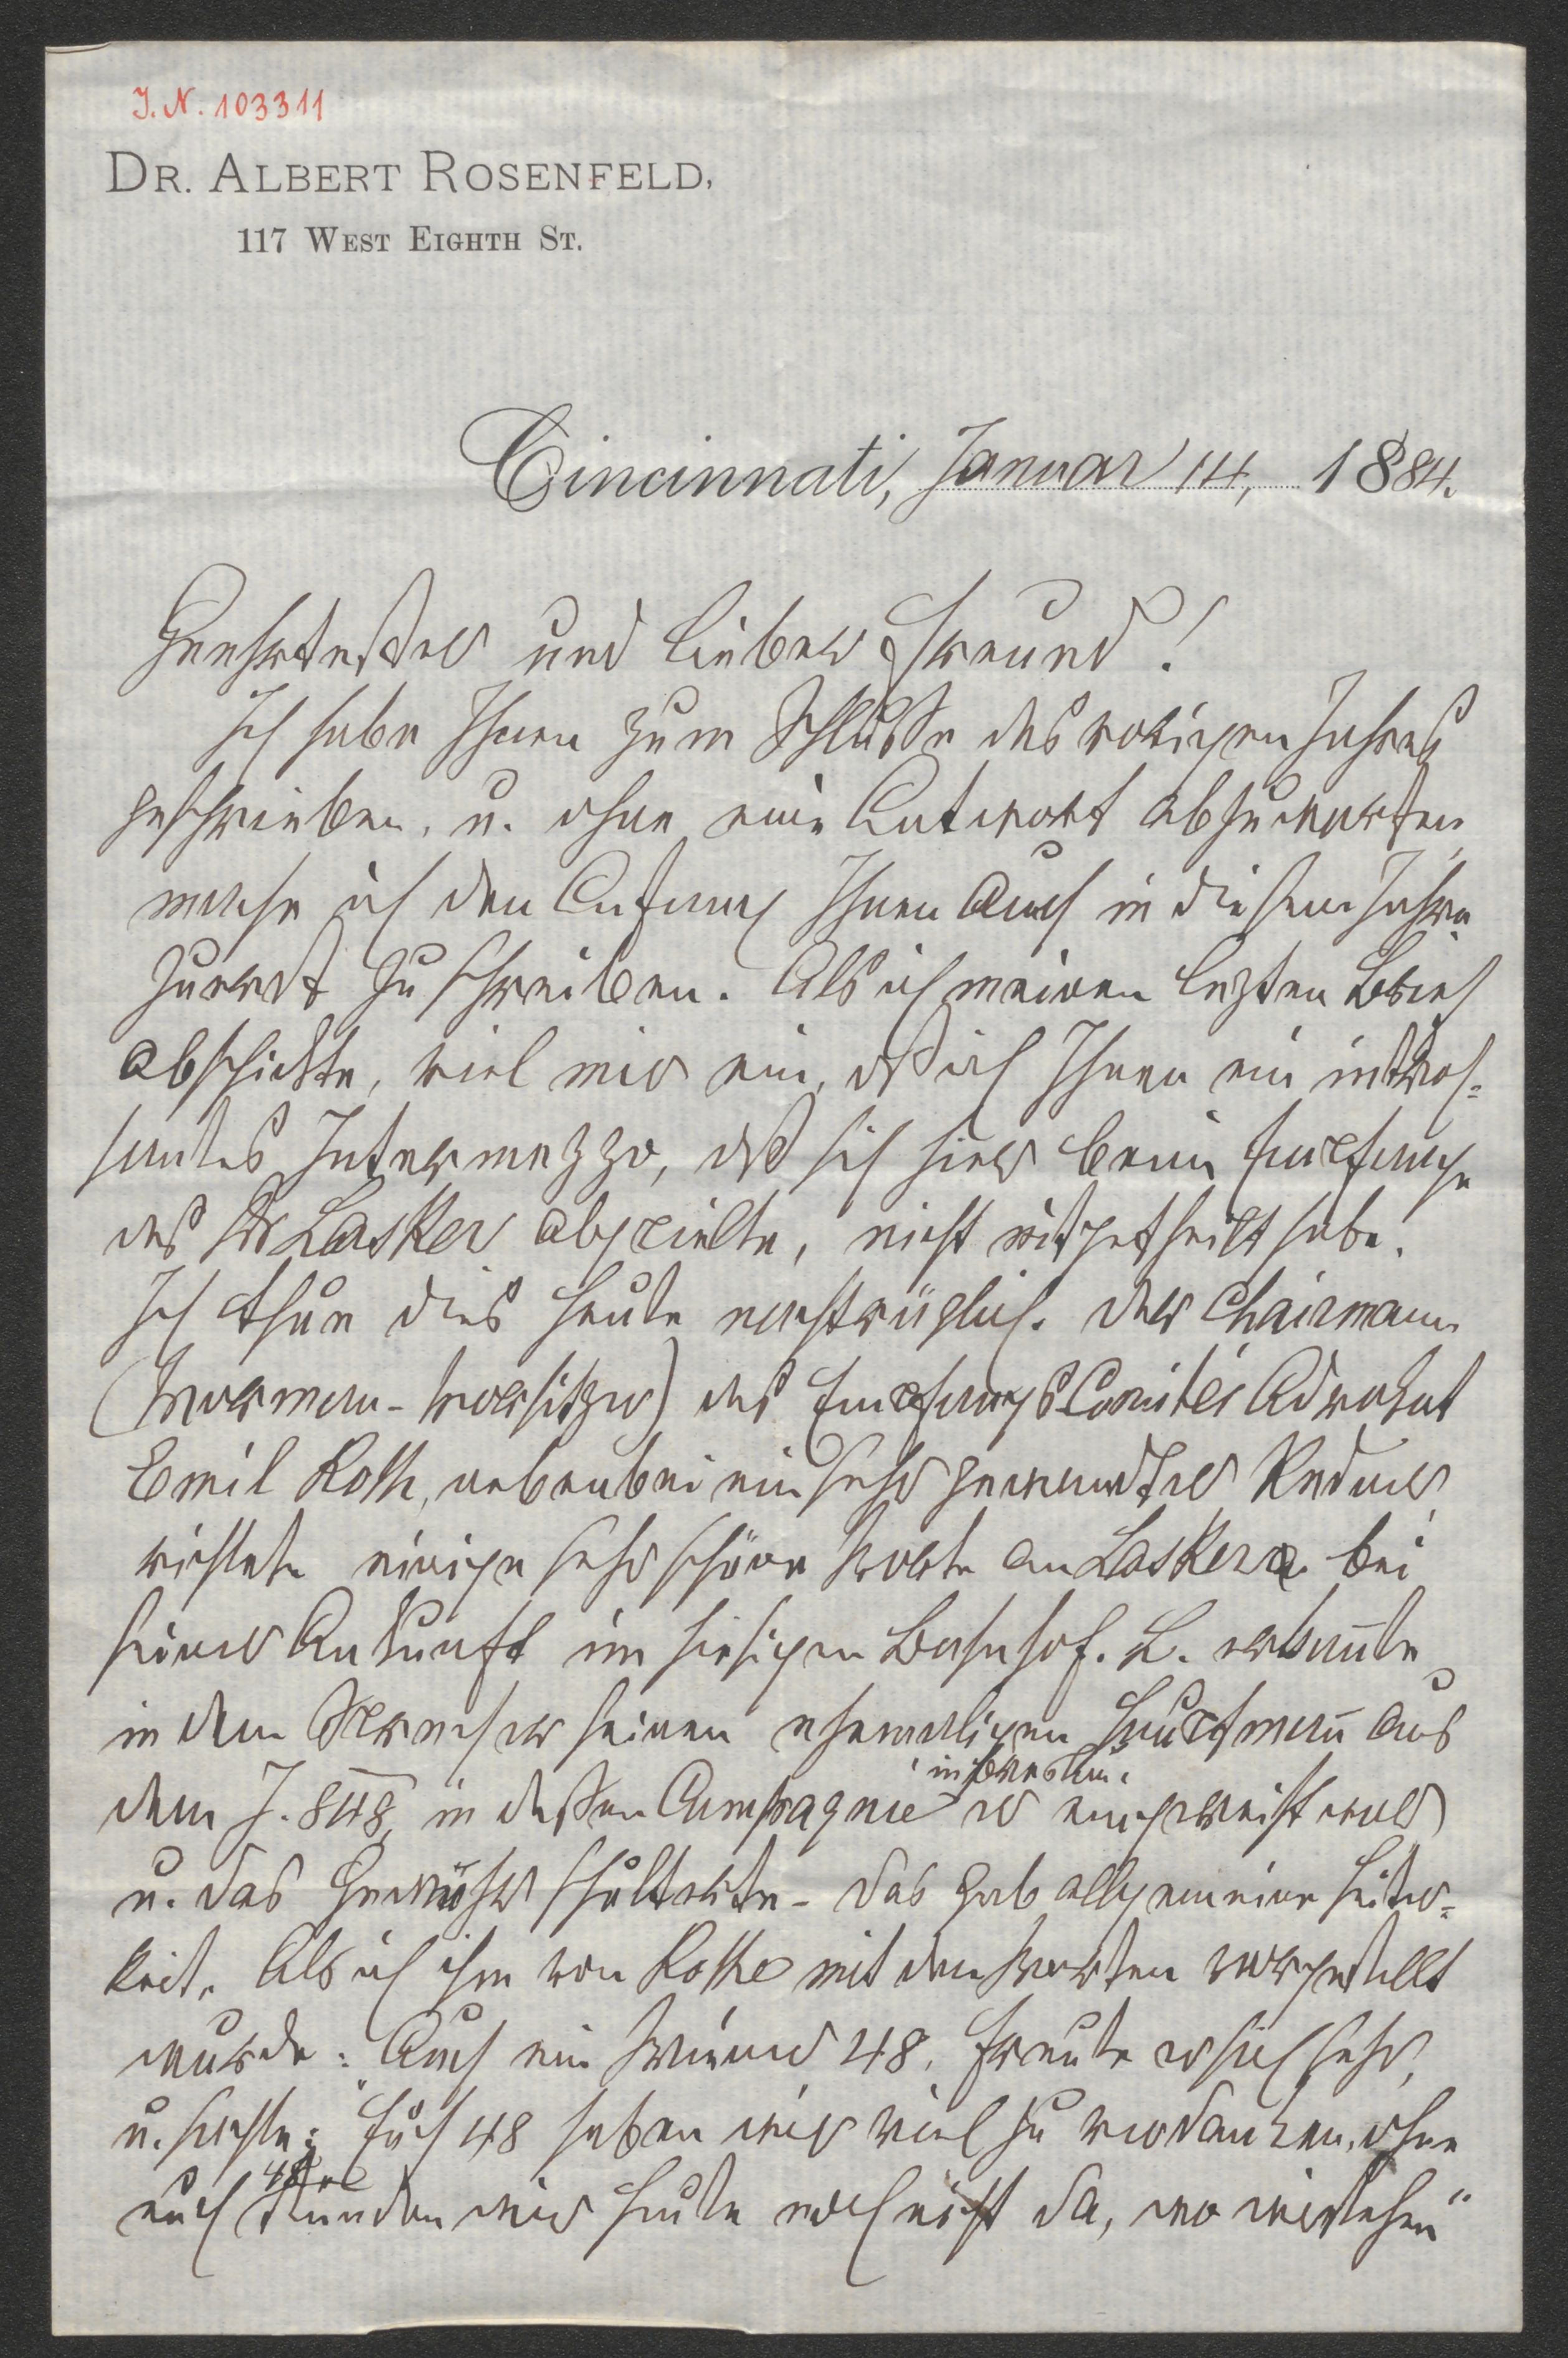 J. N. 103311
DR. ALBERT ROSENFELD,
117 WEST EIGHTH ST.
Cincinnati, Januar 14, 1884.
Geehrtester und lieber Freund!
Ich habe Ihnen zum Schluße des vorigen Jahres
geschrieben, u. ohne eine Antwort abzuwarten,
mache ich den Anfang Ihnen auch in diesem Jahre
zuerst zu schreiben. Als ich meinen lezten Brief
abschickte, viel mir ein, dß ich Ihnen ein intres-
santes Intermezzo, dß sich hier beim Empfange
des Dr Lasker abspielte, nicht mitgetheilt habe.
Ich thue dies heute nachträglich. Der Chairmann
(Vorsitzer) des Empfangs Comités Advokat
Emil Roth, nebenbei ein sehr gewandter Redner,
richtete einige sehr schöne Worte an Lasker bei
seiner Ankunft im hiesigen Bahnhof. L. erkannte
in dem Sprecher seinen ehemaligen Hauptmann aus
dem J. 848, in deßen Compagnie in Wien er eingereiht war
u. das Gewehr schulterte - das gab allgemeine Heiter-
keit. Als ich ihm von Rothe mit den Worten vorgestellt
wurde: Auch ein Wiener 48. freute er sich sehr,
u. sagte: Euch 48 haben wir viel zu verdanken, ohne
euch 48er stünden wir heute noch nicht da, wo wir stehen"